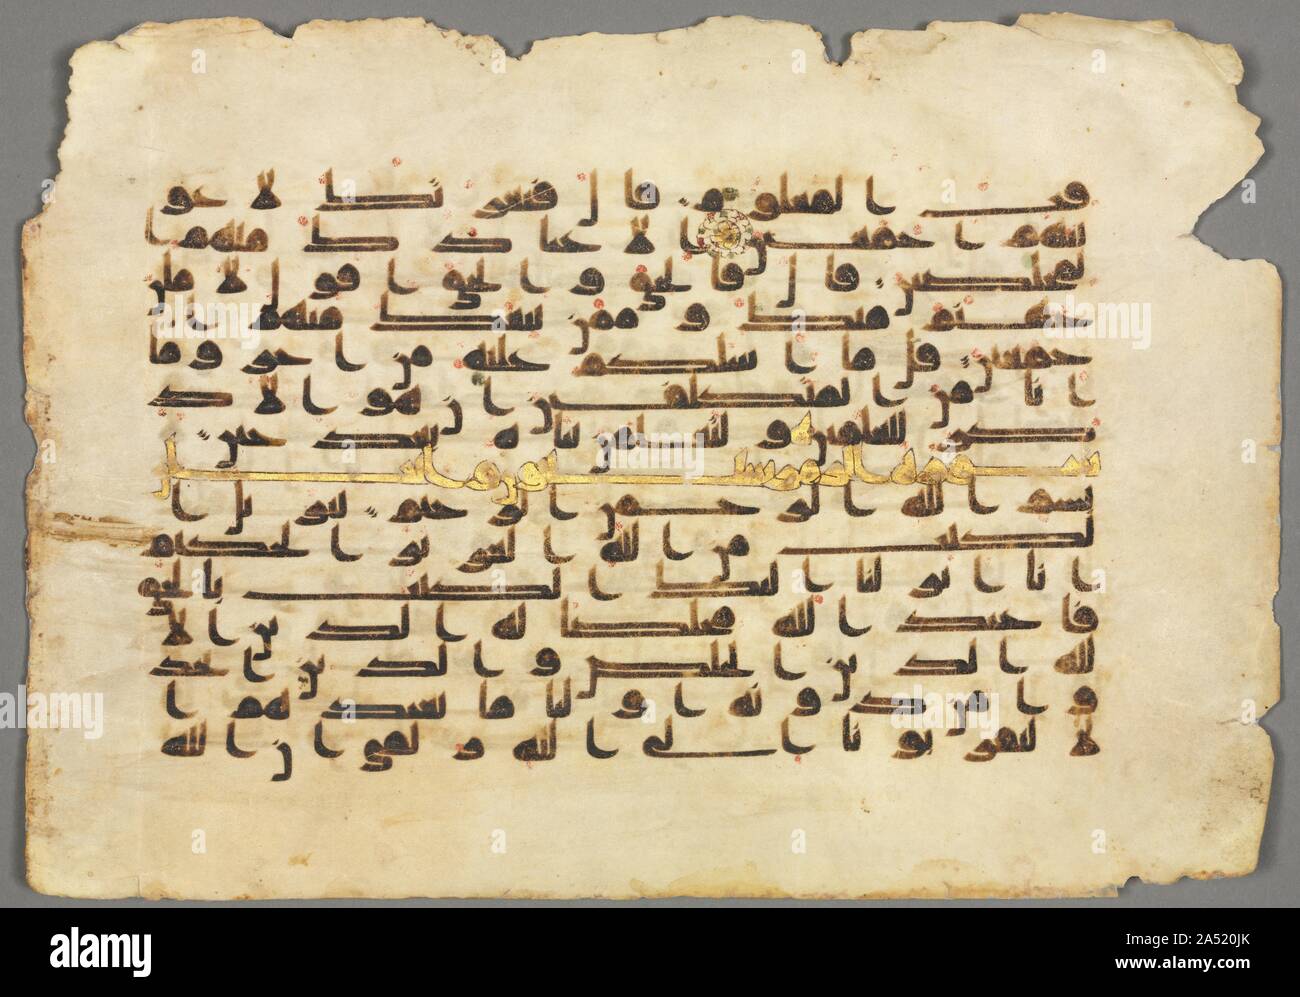 قت المعلوم قال فبعزتك لا غو
ينهم اجمعين الا عبادك منهم ا
لمخلصين قال فالحق والحق اقول لاملن
جهنم منك وممن تبعك منهم ا
جمعين قل ما اسلكم عليه من اجر وما
انا من المتكلفين ان هو الا ذ
كر للعلمين ولتعلمن نباه بعد حين
بسم الله الرحمن الرحيم تنزيل ا
لكتب من الله العزيز الحكيم
انا انزلنا اليك الكتب بالحق
فاعبد الله مخلصا له الدين الا
لله الدين الخالص والذين اتخذ
وا من دونه اوليا ما نعبدهم ا
لا ليقربونا الى الله زلفى ان الله
alamy
Image ID: 2A520JK
www.alamy.com